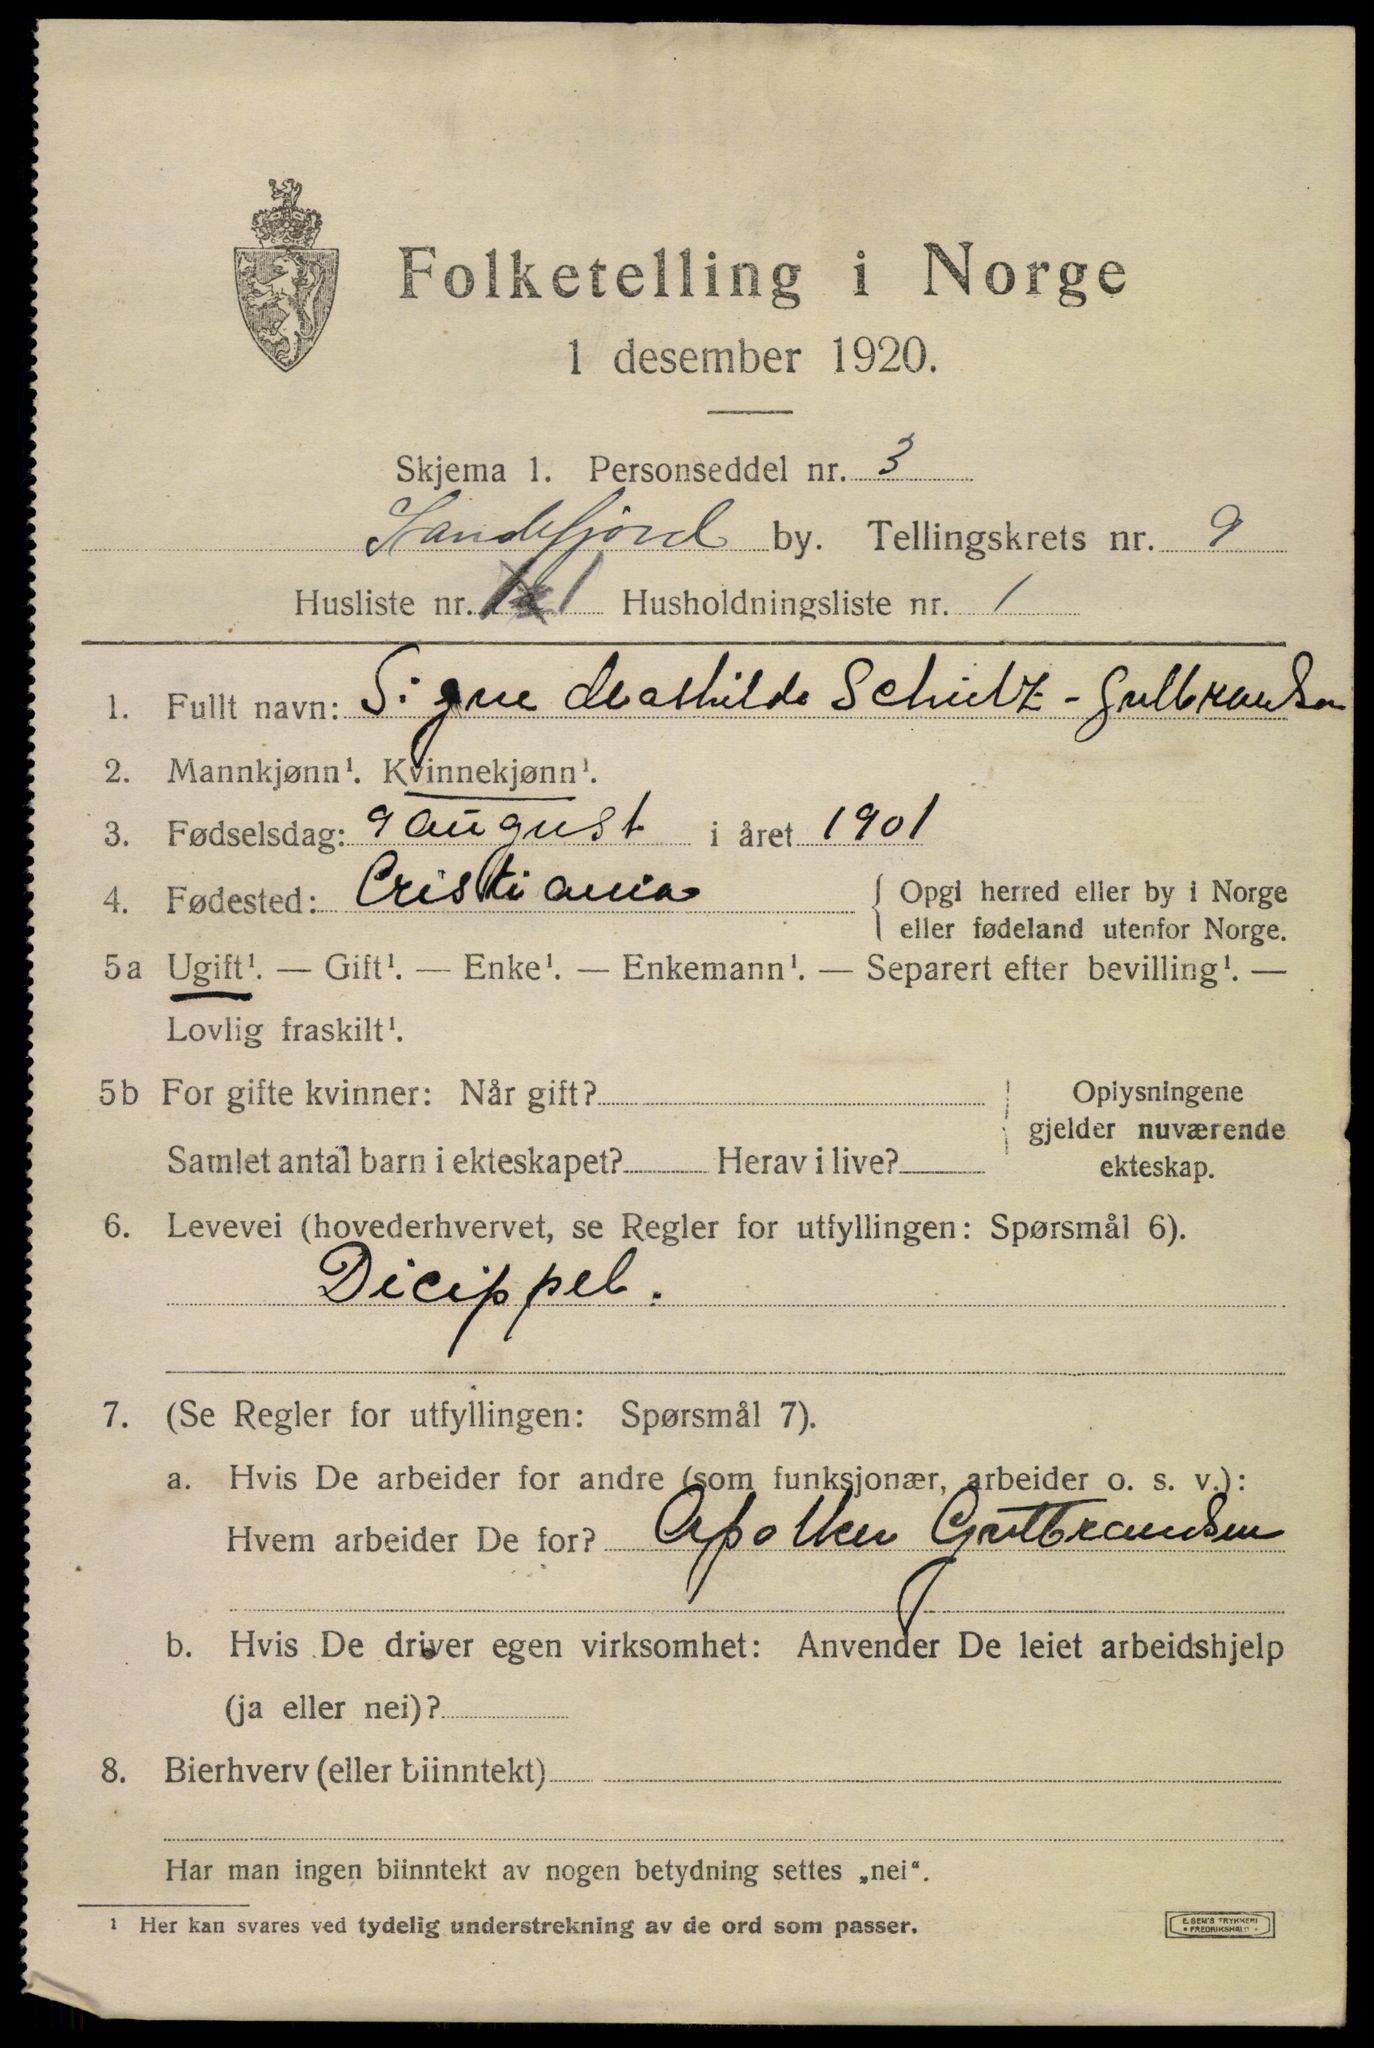 Folketelling i Norge
1 desember 1920.
Skjema 1. Personseddel nr. 3
Sandefjord by. Tellingskrets nr. 9
Husliste nr. 1 Husholdningsliste nr. 1
1. Fullt navn: Signe Mathilde Schultz-Gulbrandsen
2. Mannkjønn¹. Kvinnekjønn¹.
3. Fødselsdag: 9 august i året 1901
4. Fødested: Cristiania { Opgi herred eller by i Norge
eller fødeland utenfor Norge.
5a Ugift¹. — Gift¹. — Enke¹. — Enkemann¹. — Separert efter bevilling¹. —
Lovlig fraskilt¹.
5b For gifte kvinner: Når gift?
Samlet antal barn i ekteskapet? Herav i live?
Oplysningene
gjelder nuværende
ekteskap.
6. Levevei (hovederhvervet, se Regler for utfyllingen: Spørsmål 6).
Dicippel.
7. (Se Regler for utfyllingen: Spørsmål 7).
a. Hvis De arbeider for andre (som funksjonær, arbeider o. s. v.):
Hvem arbeider De for? Apotker Gulbrandsen
b. Hvis De driver egen virksomhet: Anvender De leiet arbeidshjelp
(ja eller nei)?
8. Bierhverv (eller biinntekt)
Har man ingen biinntekt av nogen betydning settes „nei“.
¹ Her kan svares ved tydelig understrekning av de ord som passer.
E. SEM'S TRYKKERI
• FREDRIKSHALD •